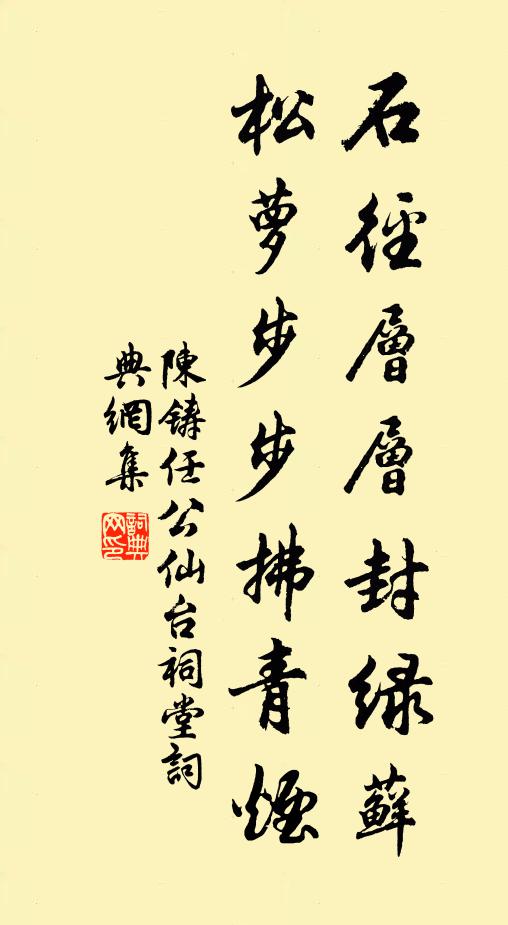 石徑層層封綠蘚
松萝步步拂青煙
陳鑄任公仙台祠堂詞
典網集
詞典網印